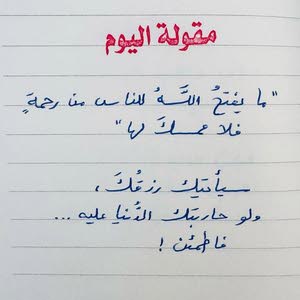 مقولة اليوم
"ما يفتحُ اللَّهُ للناس من رحمةٍ
فلا ممسكَ لها"
سيأتيك رزقُكَ،
ولو حاربتك الدُّنيا عليه...
فاطمئن!